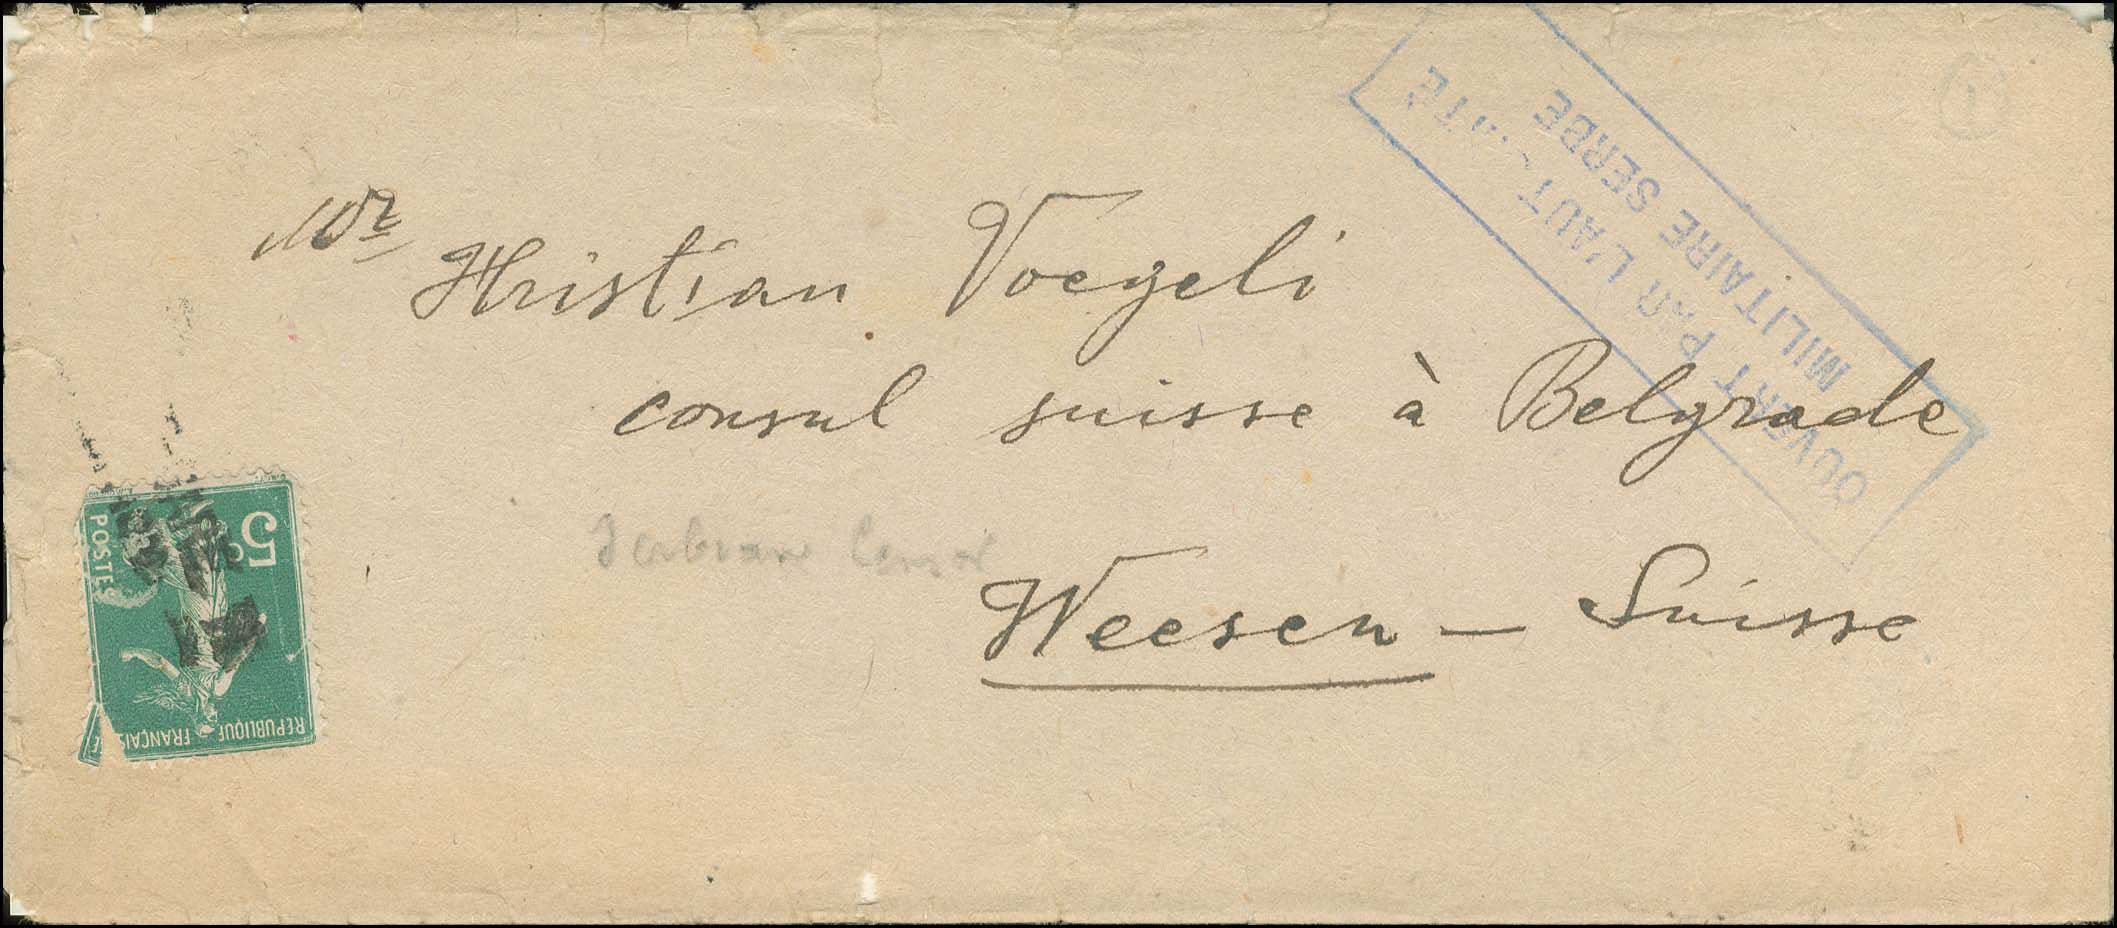 OUVERT PAR L'AUTORITÉ
MILITAIRE SERBE
1
Mr
Hristian Voegeli
consul suisse à Belgrade
Weesen — Suisse
5c
POSTES
REPUBLIQUE FRANÇAISE